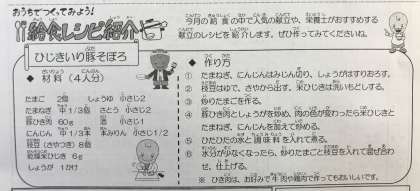 おうちでつくってみよう!
給食レシピ紹介
今月の給食の中で人気の献立や、栄養士がおすすめする
献立のレシピを紹介します。ぜひ作ってみてくださいね。
ひじきいり豚そぼろ
◆ 材料（4人分）
たまご 2個 しょうゆ 小さじ2
たまねぎ 中1/3個 さとう 小さじ2
豚ひき肉 60g 酒 小さじ1
にんじん 中1/3本 本みりん 小さじ1/2
枝豆（さやつき）8個
乾燥米ひじき 6g
しょうが 1かけ
◆ 作り方
① たまねぎ、にんじんはみじん切り、しょうがはすりおろす。
② 枝豆はゆで、さやから出す。米ひじきは洗いもどしする。
③ 炒りたまごを作る。
④ 豚ひき肉としょうがを炒め、肉の色が変わったら米ひじきと
たまねぎ、にんじんを加えて炒める。
⑤ ひたひたの水と調味料を入れて煮る。
⑥ 水分が少なくなったら、炒りたまごと枝豆を入れて混ぜ合わ
せ、仕上げる。
※ ひき肉は、お好みで牛肉や鶏肉で作ってもおいしいです。